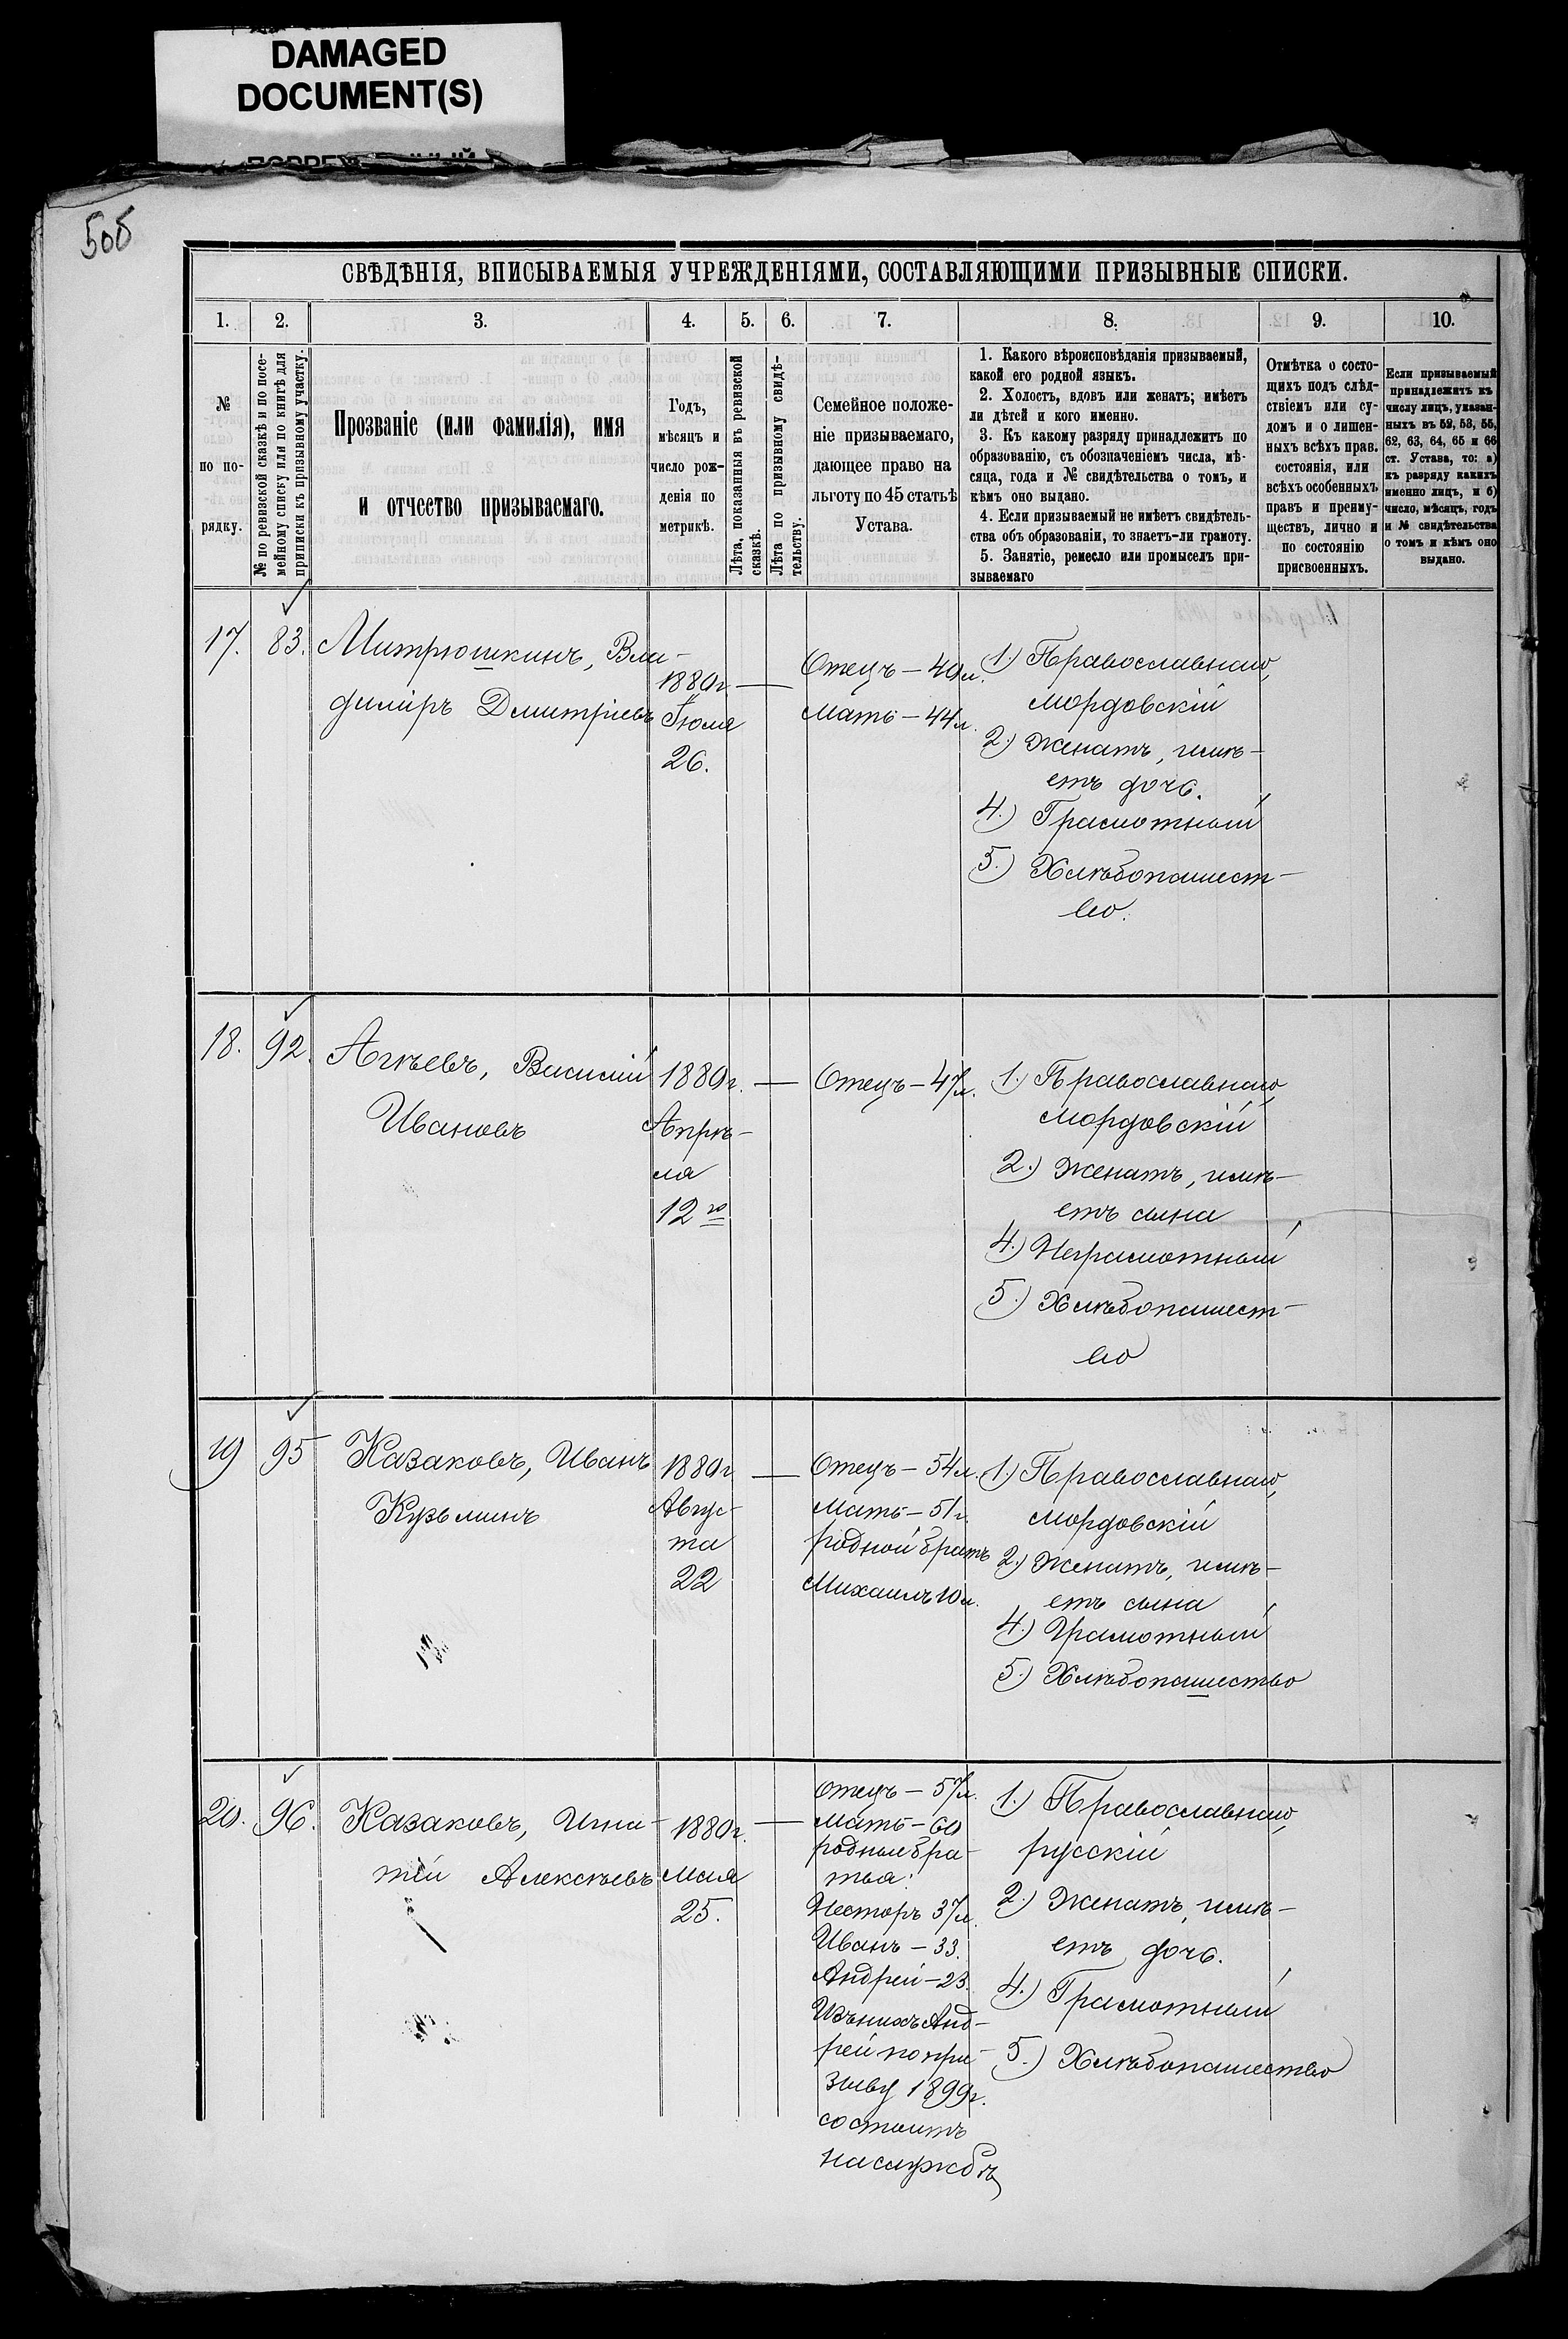 DAMAGED
DOCUMENT(S)
505
СВѢДѢНІЯ, ВПИСЫВАЕМЫЯ УЧРЕЖДЕНІЯМИ, СОСТАВЛЯЮЩИМИ ПРИЗЫВНЫЕ СПИСКИ.
1. 2. 3. 4. 5. 6. 7. 8. 9. 10.
№
по по-
рядку.
№ по ревизской сказкѣ и по посе-
мейному списку или по книгѣ для
приписки къ призывному участку.
Прозваніе (или фамилія), имя
и отчество призываемаго.
Годъ,
мѣсяцъ и
число рож-
денія по
метрикѣ.
Лѣта, показанныя въ ревизской
сказкѣ.
Лѣта по призывному свидѣ-
тельству.
Семейное положе-
ніе призываемаго,
дающее право на
льготу по 45 статьѣ
Устава.
1. Какого вѣроисповѣданія призываемый,
какой его родной языкъ.
2. Холостъ, вдовъ или женатъ; имѣетъ
ли дѣтей и кого именно.
3. Къ какому разряду принадлежитъ по
образованію, съ обозначеніемъ числа, мѣ-
сяца, года и № свидѣтельства о томъ, и
кѣмъ оно выдано.
4. Если призываемый не имѣетъ свидѣтель-
ства объ образованіи, то знаетъ-ли грамоту.
5. Занятіе, ремесло или промыселъ при-
зываемаго
Отмѣтка о состо-
щихъ подъ слѣд-
ствіемъ или су-
домъ и о лишен-
ныхъ всѣхъ прав.
состоянія, или
всѣхъ особенныхъ
правъ и преиму-
ществъ, лично и
по состоянію
присвоенныхъ.
Если призываемый
принадлежитъ къ
числу лицъ, указан-
ныхъ въ 52, 53, 55,
62, 63, 64, 65 и 66
ст. Устава, то: а)
къ разряду какихъ
именно лицъ, и б)
число, мѣсяцъ, годъ
и № свидѣтельства
о томъ и кѣмъ оно
выдано.
17. 83. Митрюшкинъ, Вла-
диміръ Дмитріевъ
1880г.
Іюля
26.
Отецъ – 49л.
Мать – 44л.
1.) Православнаго,
мордовскій
2.) Женатъ, имѣ-
етъ дочь.
4.) Грамотный
5.) Хлѣбопашест-
во.
18. 92. Агѣевъ, Василій
Ивановъ
1880г.
Апрѣ-
ля
12го
Отецъ – 47л.
1.) Православнаго,
мордовскій
2.) Женатъ, имѣ-
етъ сына
4.) Неграмотный
5.) Хлѣбопашест-
во
19 95 Казаковъ, Иванъ
Кузьминъ
1880г
Авгус-
та
22
Отецъ – 54л.
Мать – 51г.
родной братъ
Михаилъ 10л.
1.) Православнаго,
мордовскій
2.) Женатъ, имѣ-
етъ сына
4.) Грамотный
5.) Хлѣбопашество
20. 96. Казаковъ, Игна-
тій Алексѣевъ
1880г.
Мая
25.
Отецъ – 57л.
Мать – 60
родные бра-
тья:
Несторъ 37л.
Иванъ – 33.
Андрей – 23.
Изъ нихъ Анд-
рей по при-
зыву 1899г.
состоитъ
на службѣ
1.) Православнаго,
русскій
2.) Женатъ, имѣ-
етъ дочь.
4.) Грамотный
5.) Хлѣбопашество